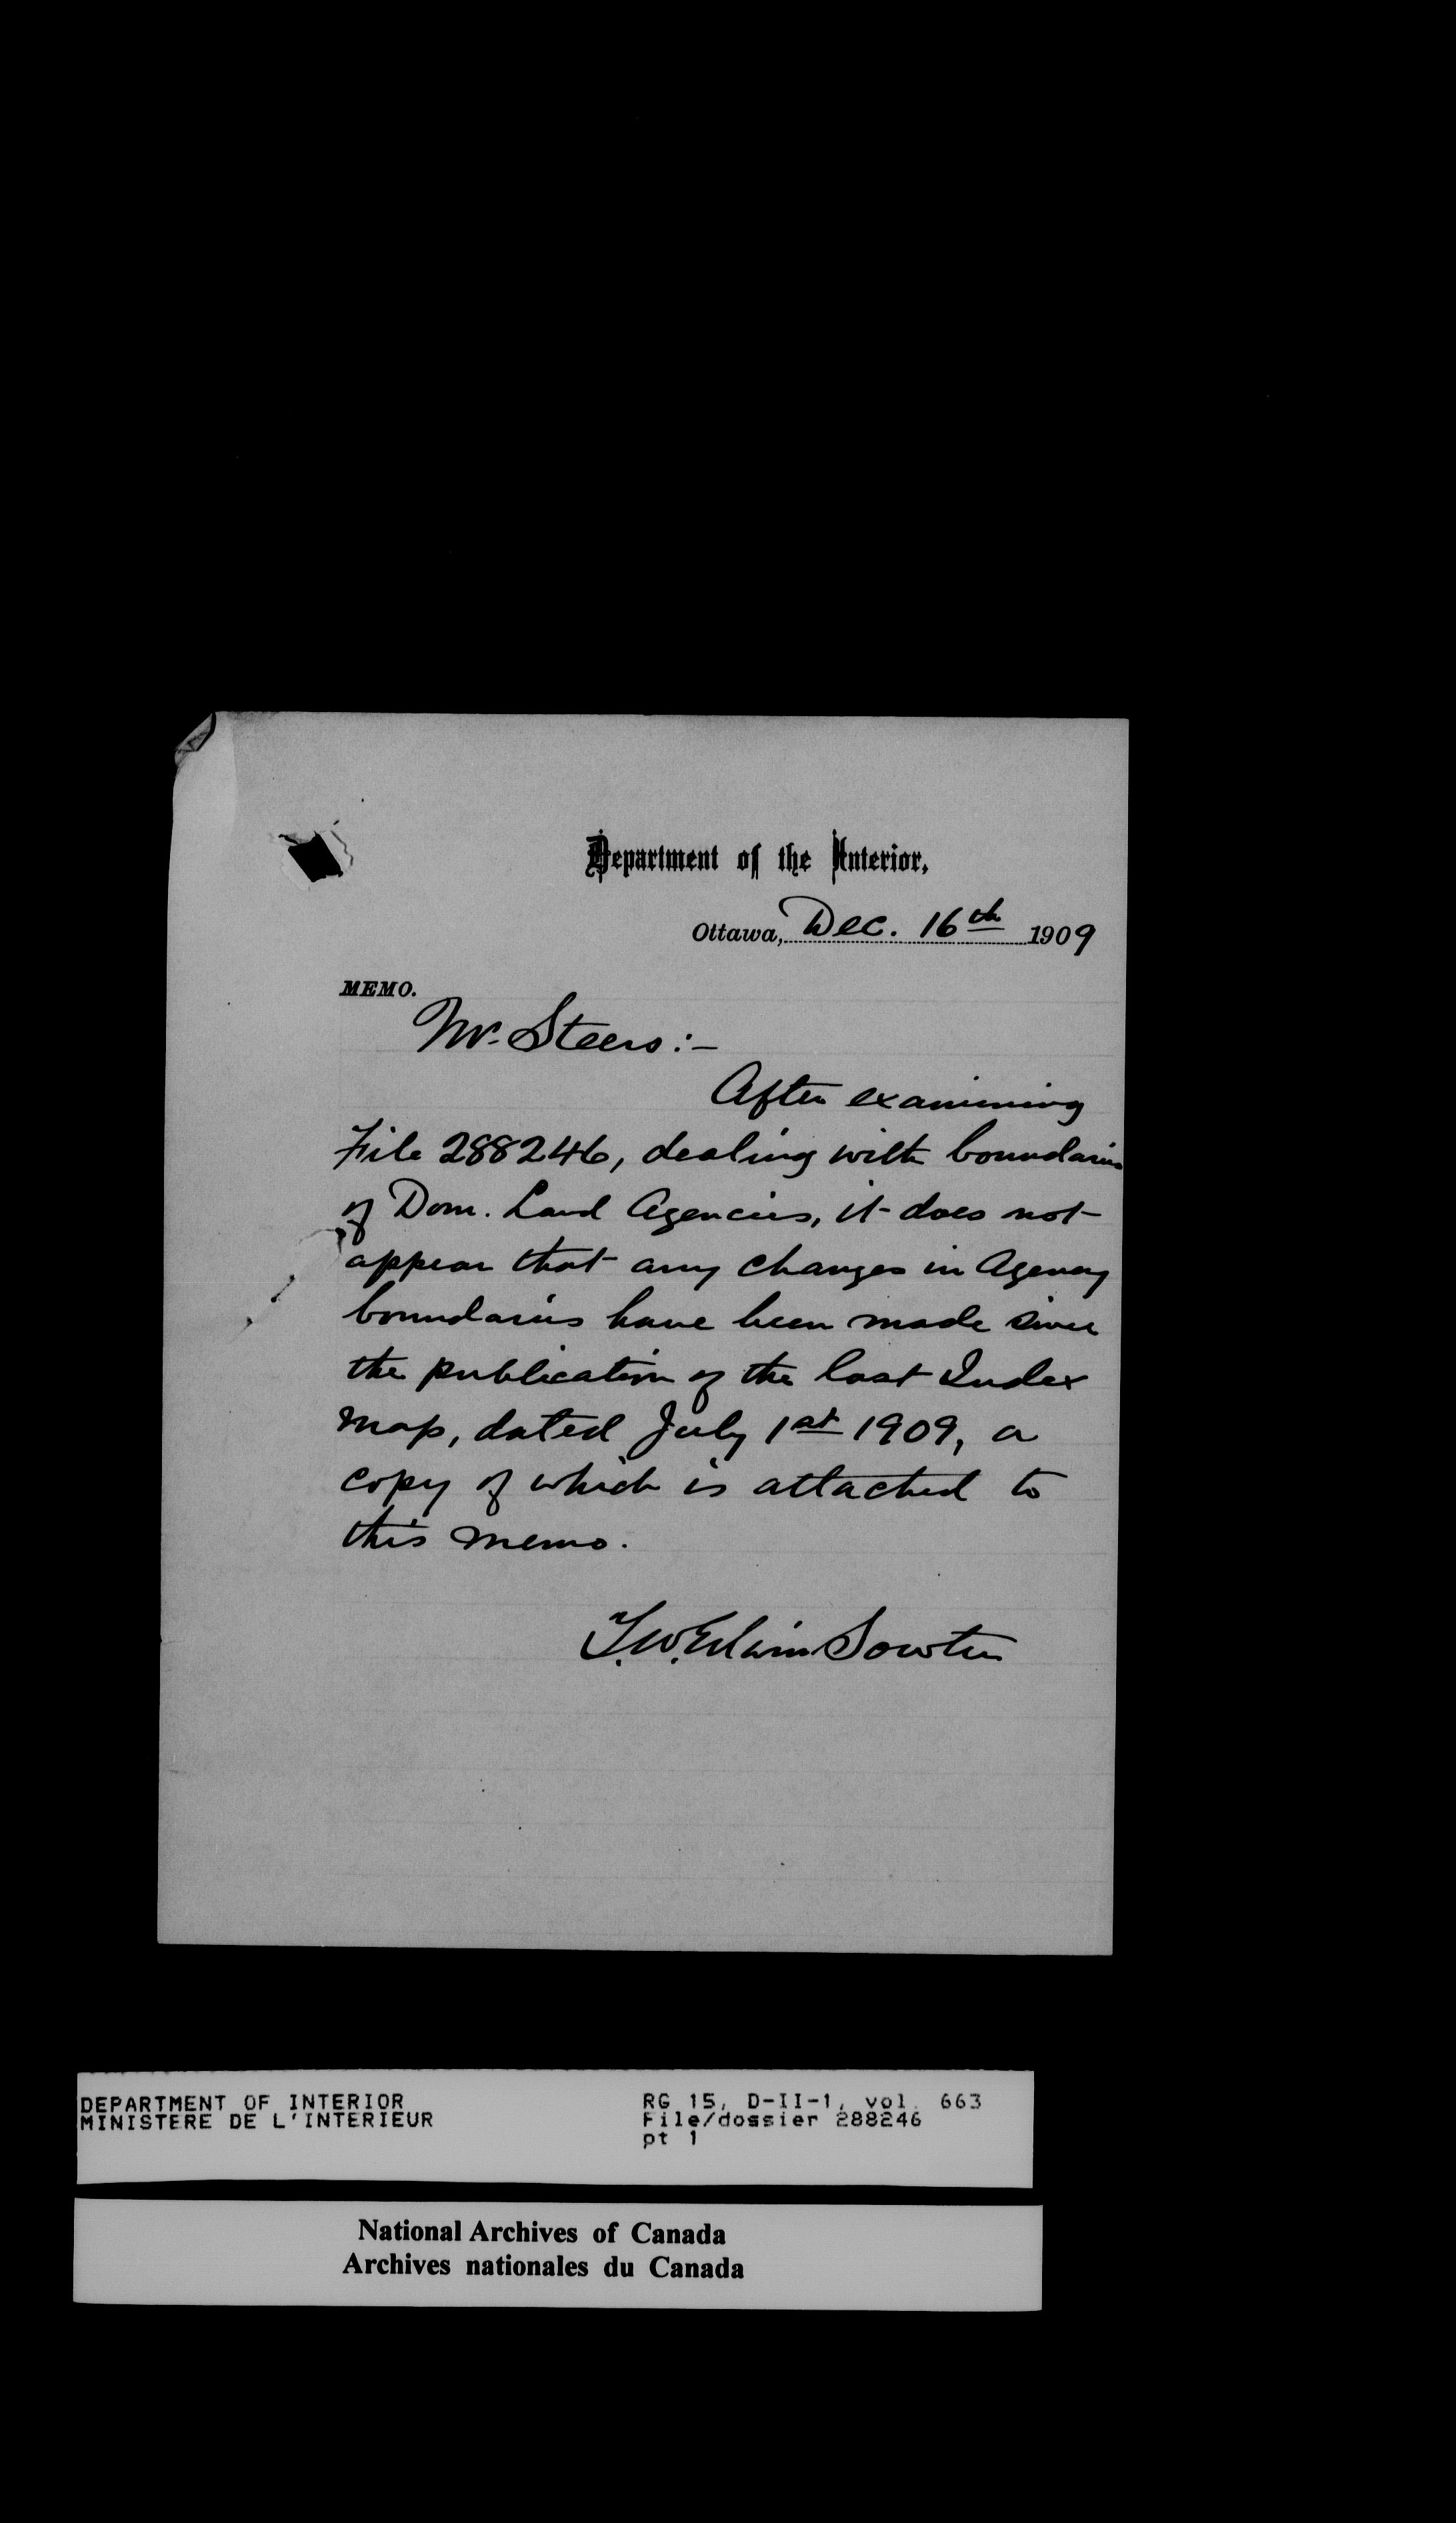 Department of the Interior,
Ottawa, Dec. 16th 1909
MEMO.
Mr. Steers:—
After examining
File 288246, dealing with boundaries
of Dom. Land Agencies, it does not
appear that any changes in Agency
boundaries have been made since
the publication of the last Index
map, dated July 1st 1909, a
copy of which is attached to
this memo.
T.W. Edwin Sowter
DEPARTMENT OF INTERIOR
MINISTERE DE L'INTERIEUR
RG 15, D-II-1, vol. 663
File/dossier 288246
pt 1
National Archives of Canada
Archives nationales du Canada